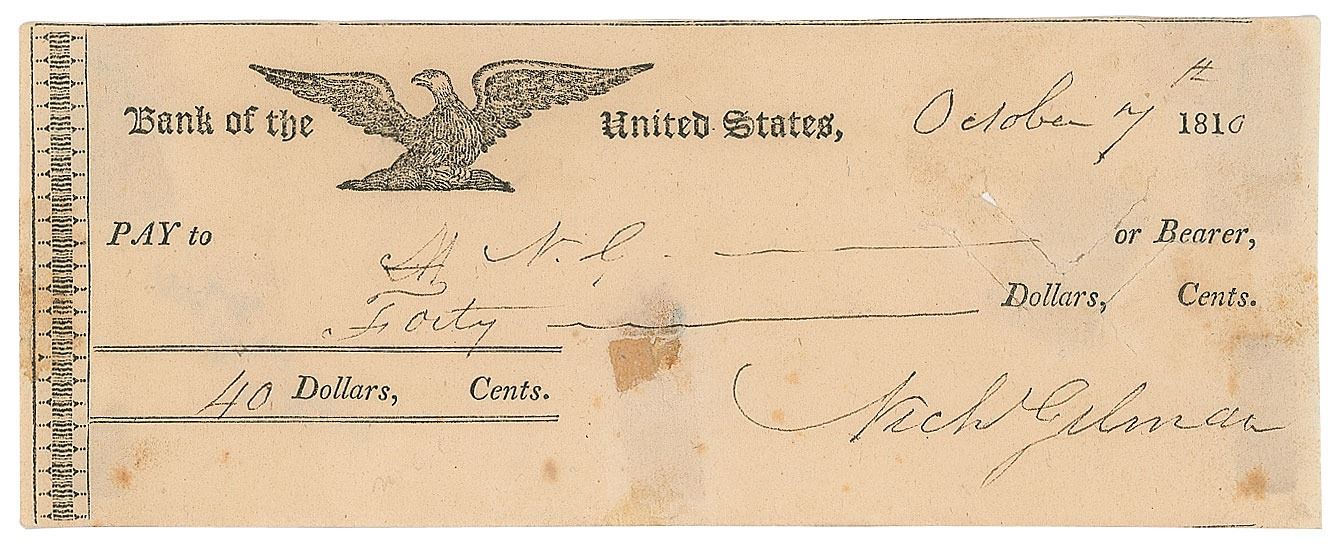 Bank of the United States, October 7th 1810
PAY to N. G. or Bearer,
Forty Dollars, Cents.
40 Dollars, Cents.
Nichs Gilman